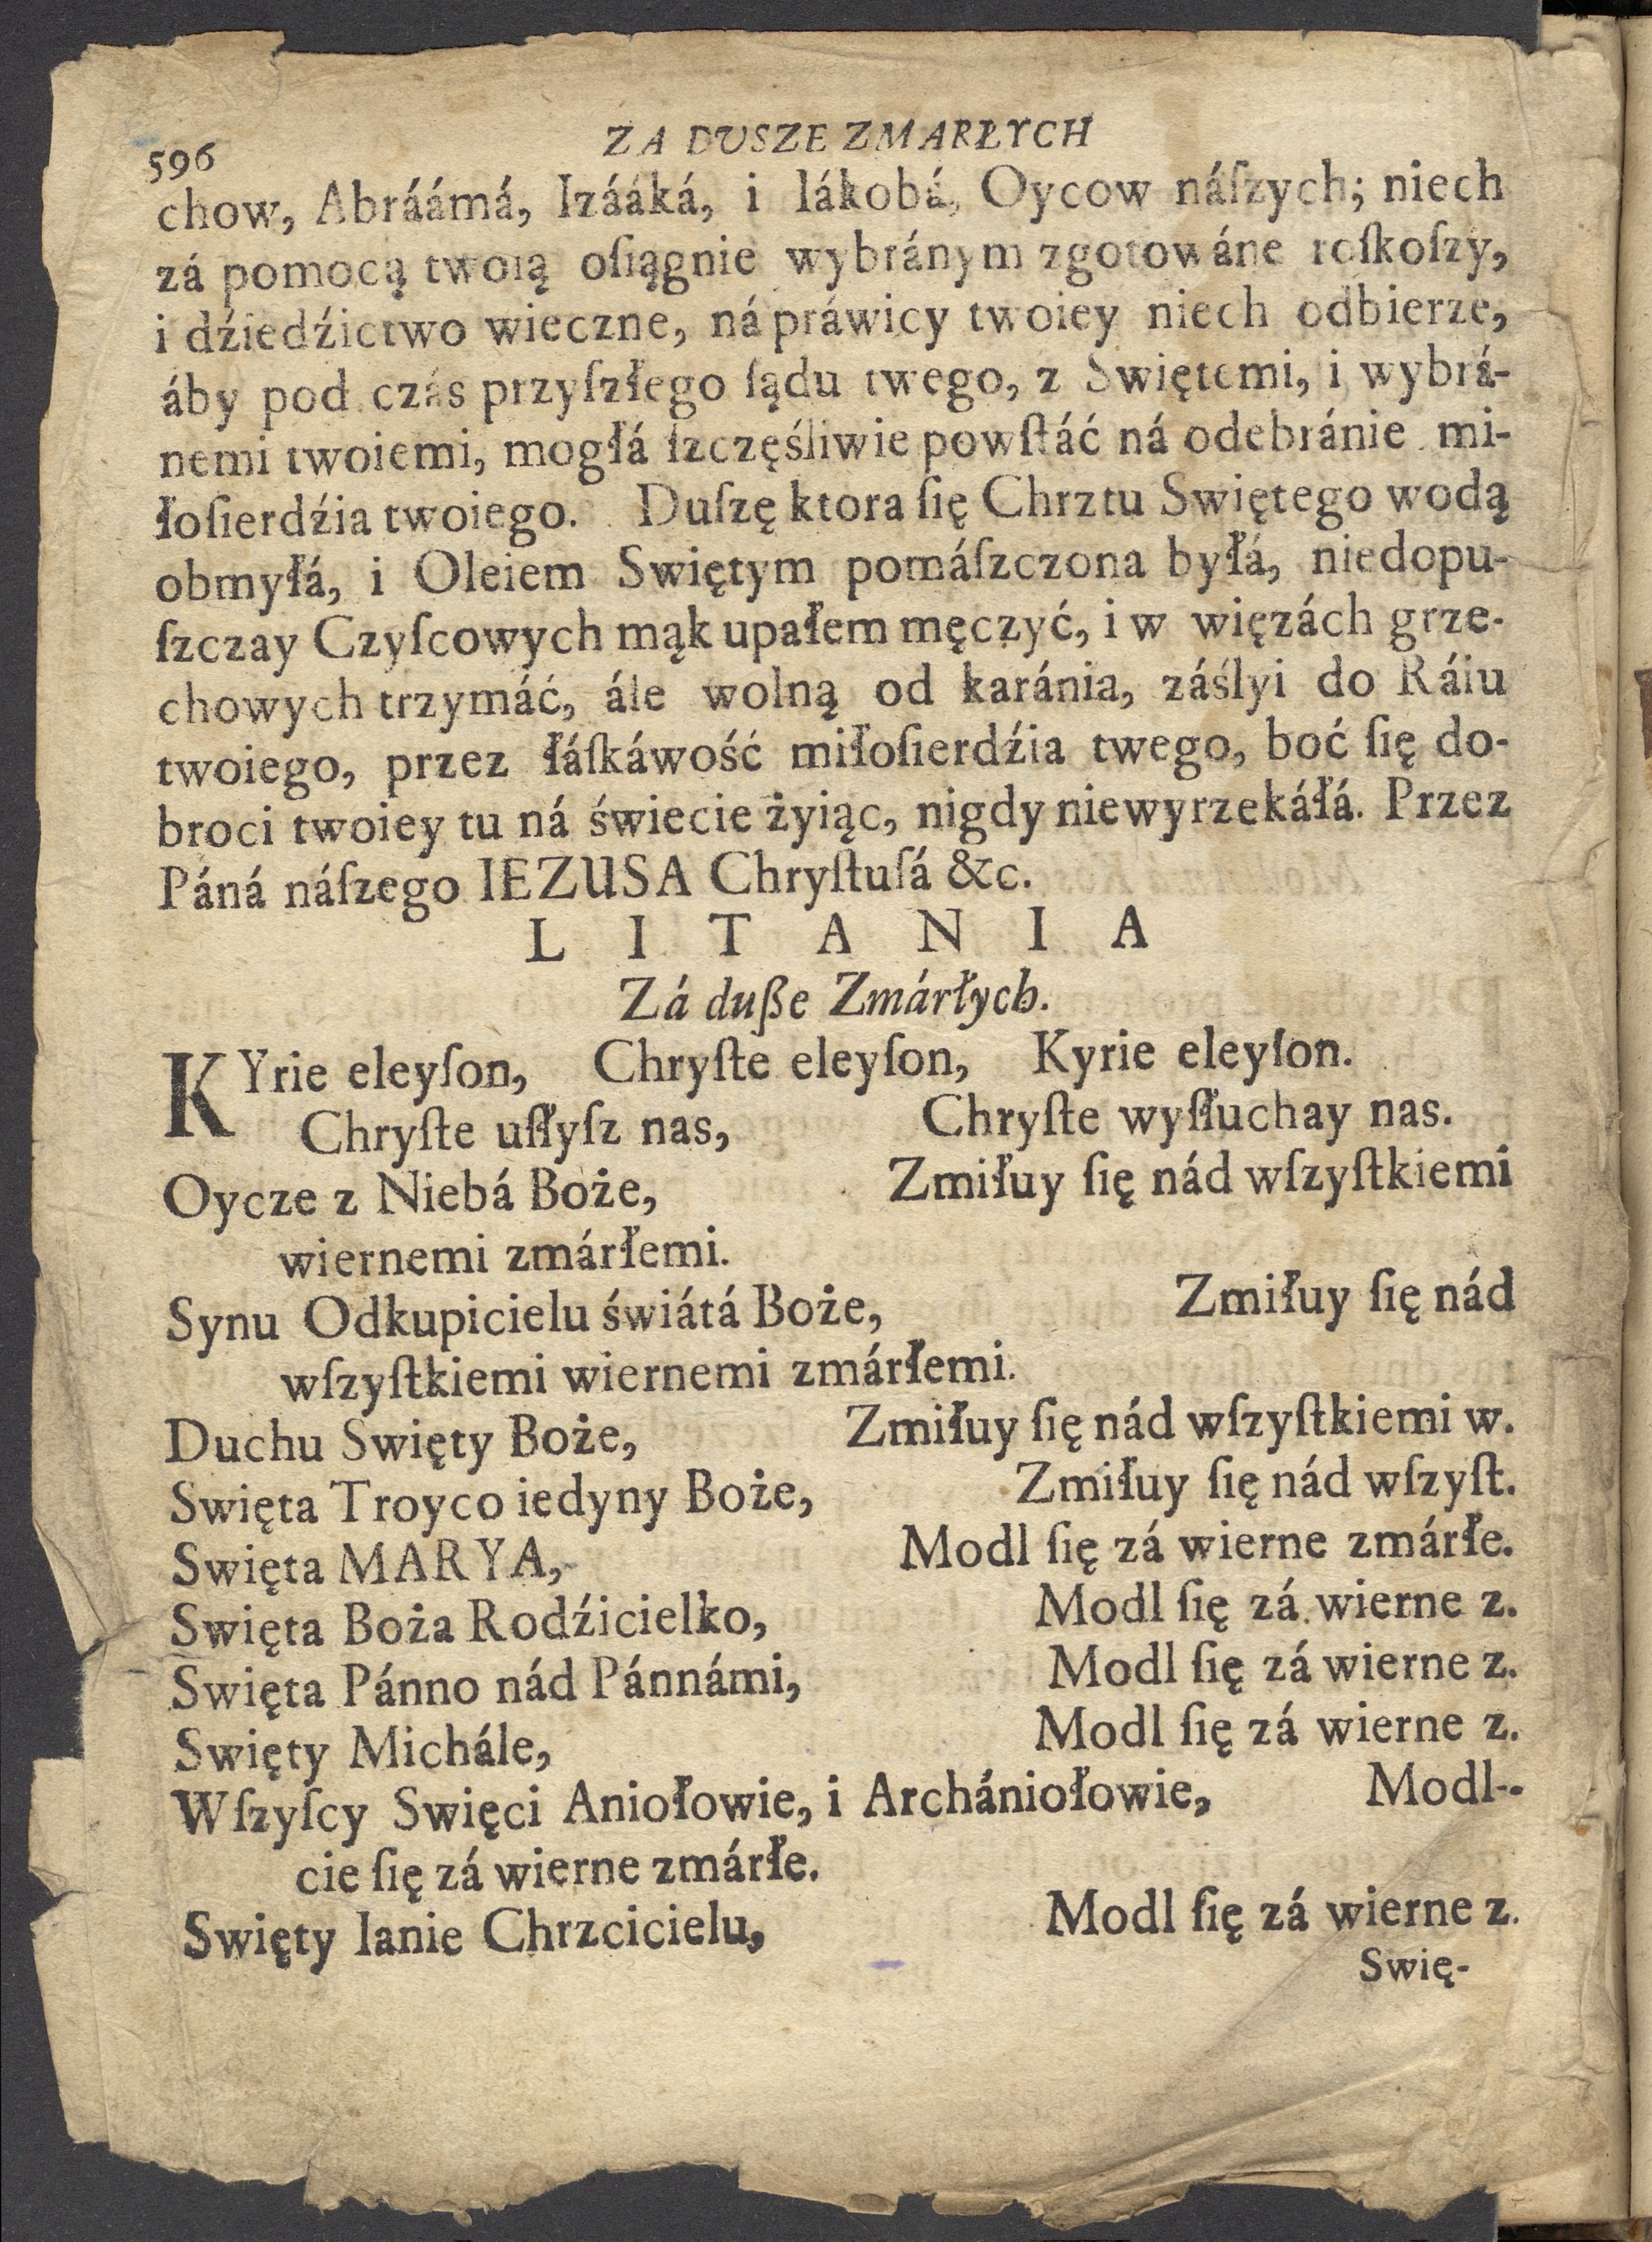 596 ZA DUSZE ZMARŁYCH
chow, Abráámá, Izááká, i Iákobá, Oycow náſzych; niech
zá pomocą twoią oſiągnie wybránym zgotowáne roſkoſzy,
i dźiedźictwo wieczne, ná práwicy twoiey niech odbierze,
áby pod czás przyſzłego ſądu twego, z Swiętemi, i wybrá-
nemi twoiemi, mogłá ſzczęśliwie powſtáć ná odebránie mi-
łoſierdźia twoiego. Duſzę ktora ſię Chrztu Swiętego wodą
obmyłá, i Oleiem Swiętym pomáſzczona byłá, niedopu-
ſzczay Czyſcowych mąk upałem męczyć, i w więzách grze-
chowych trzymáć, ále wolną od karánia, záślyi do Ráiu
twoiego, przez łáſkáwość miłoſierdźia twego, boć ſię do-
broci twoiey tu ná świecie żyiąc, nigdy niewyrzekáłá. Przez
Páná náſzego IEZUSA Chryſtuſá &c.
L I T A N I A
Zá duße Zmárłych.
KYrie eleyſon, Chryſte eleyſon, Kyrie eleyſon.
Chryſte uſłyſz nas, Chryſte wyſłuchay nas.
Oycze z Niebá Boże, Zmiłuy ſię nád wſzyſtkiemi
wiernemi zmárłemi.
Synu Odkupicielu świátá Boże, Zmiłuy ſię nád
wſzyſtkiemi wiernemi zmárłemi.
Duchu Swięty Boże, Zmiłuy ſię nád wſzyſtkiemi w.
Swięta Troyco iedyny Boże, Zmiłuy ſię nád wſzyſt.
Swięta MARYA, Modl ſię zá wierne zmárłe.
Swięta Boża Rodźicielko, Modl ſię zá wierne z.
Swięta Pánno nád Pánnámi, Modl ſię zá wierne z.
Swięty Michále, Modl ſię zá wierne z.
Wſzyſcy Swięci Aniołowie, i Archániołowie, Modl-
cie ſię zá wierne zmárłe.
Swięty Ianie Chrzcicielu, Modl ſię zá wierne z.
Swię-